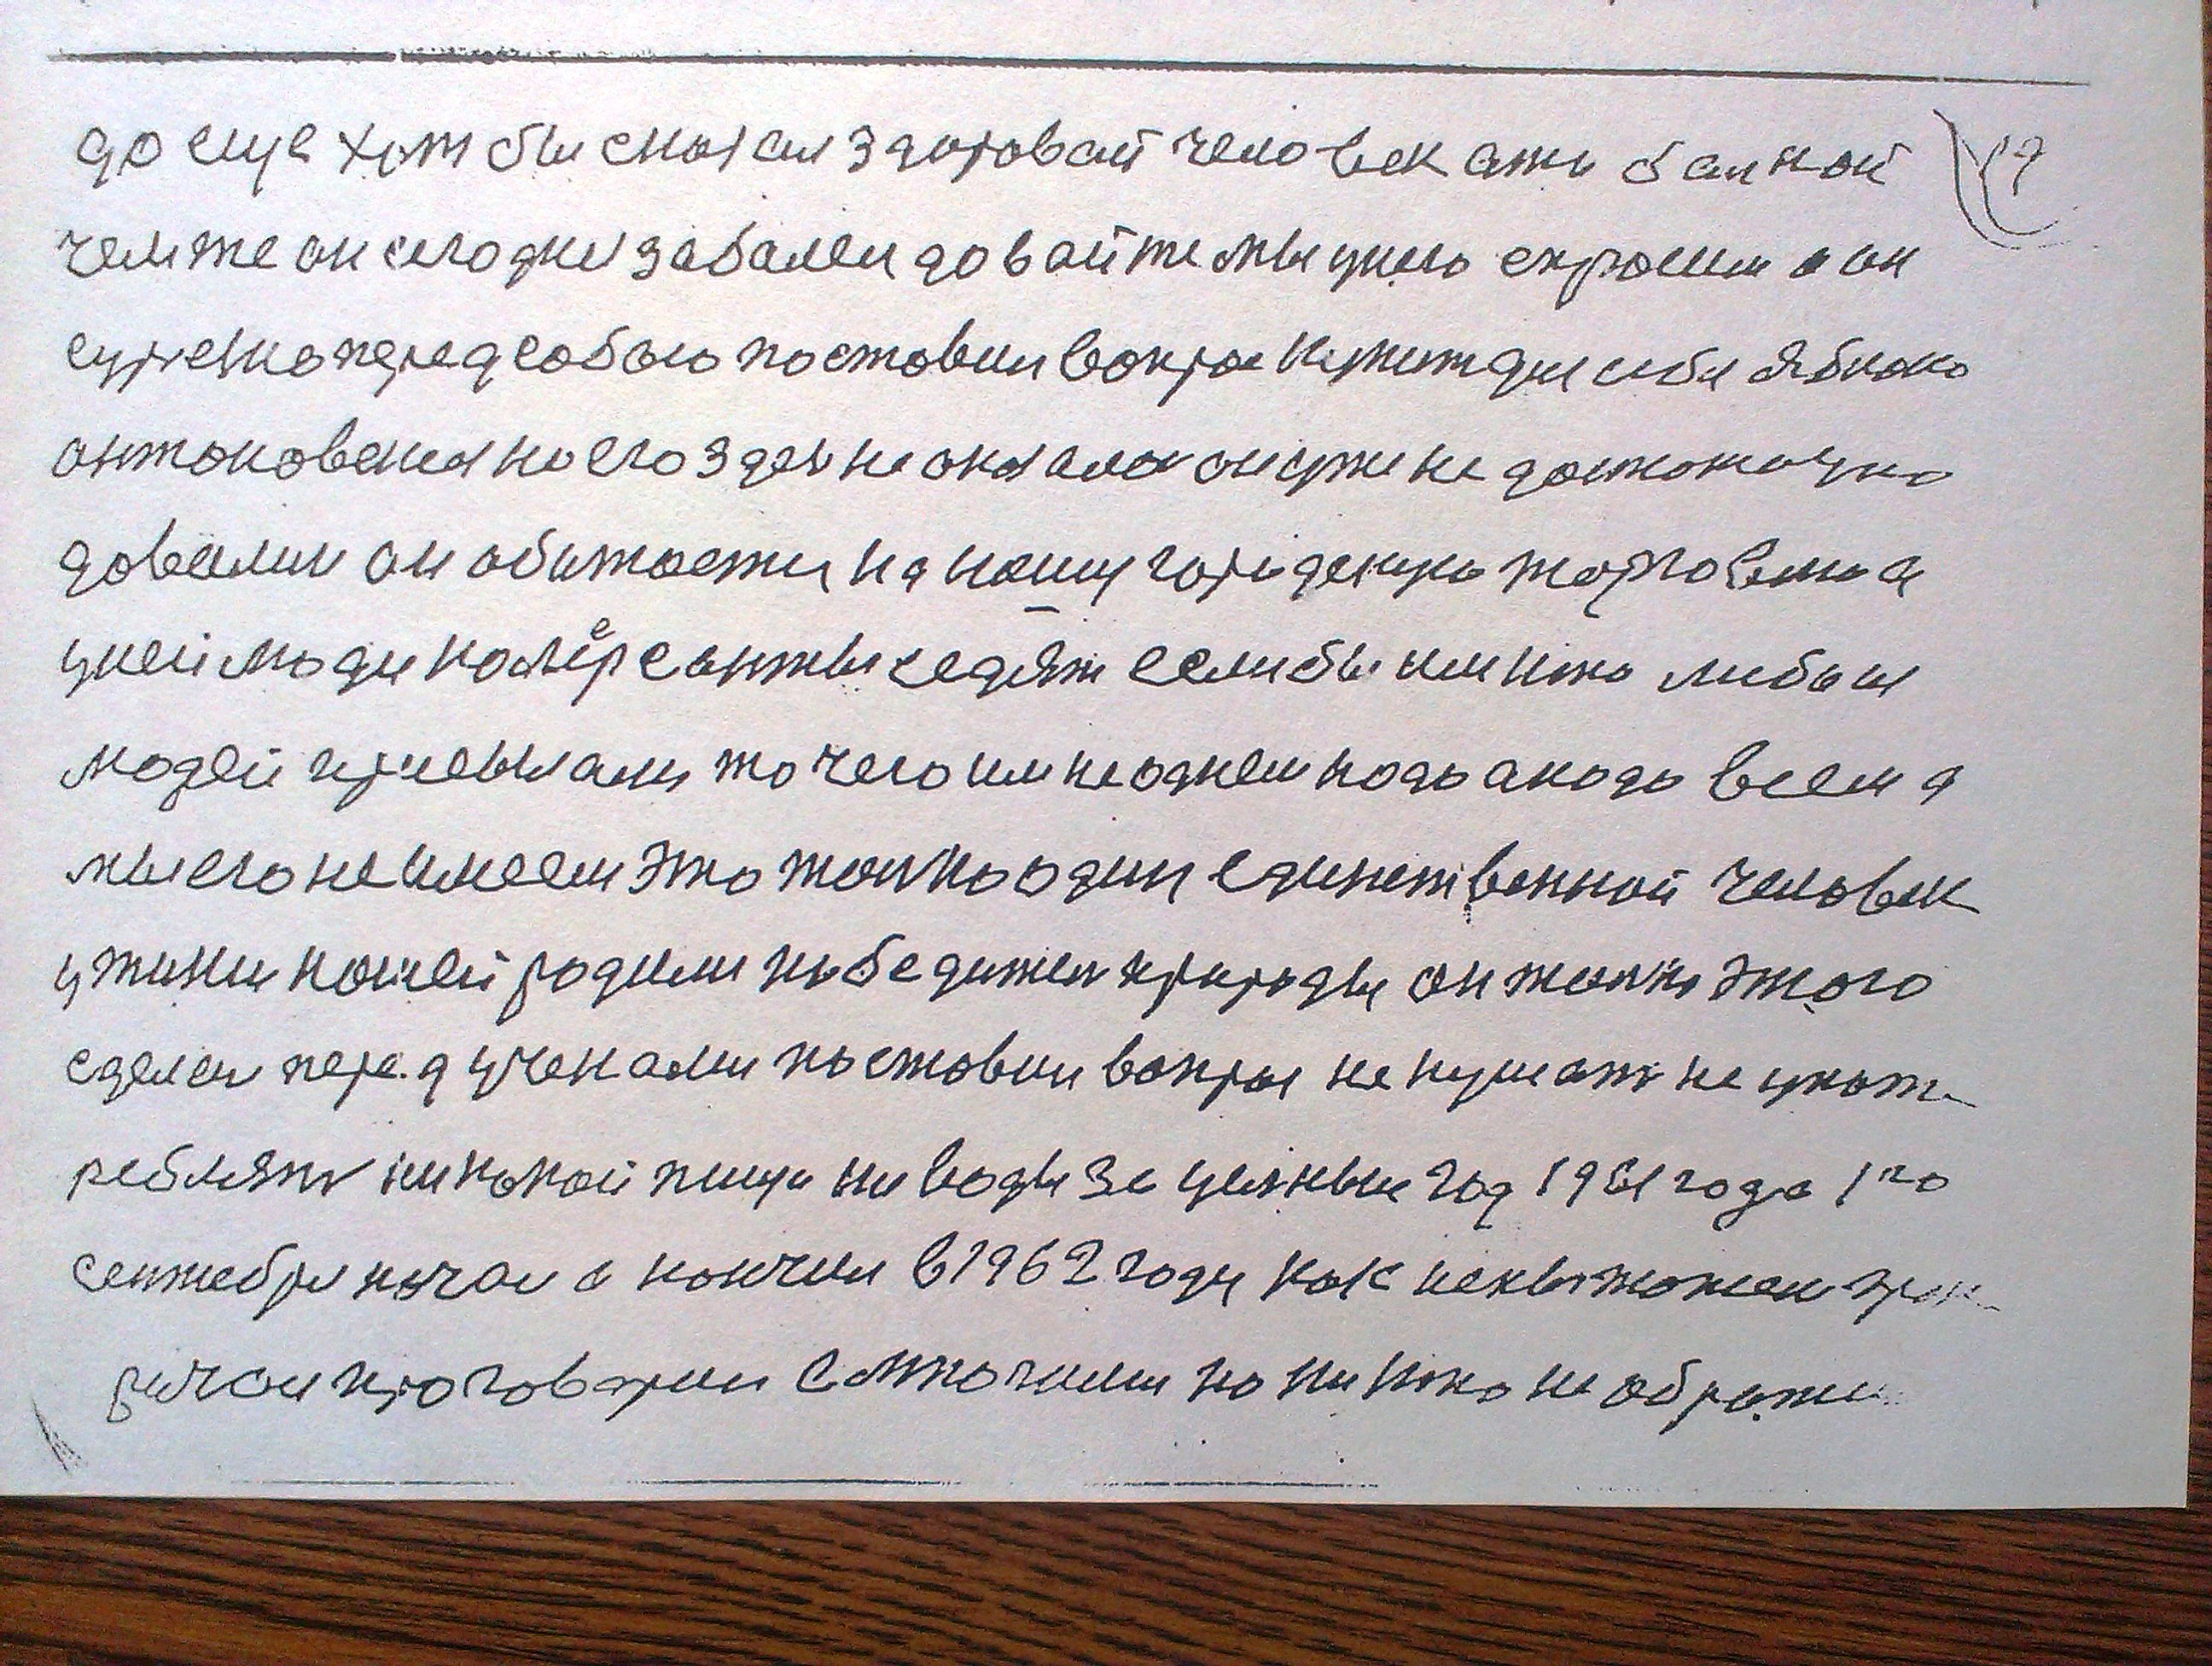 да еще хотя бы сказал здоровай человек ато балной
чем же он сегодня забалел довайте мы унего спросим а он
сурезно перед собою поставил вопрос купит для себя яблоко
антоновския но его здесь не оказалос он уже не достоточно
давелин он обитости на нашу городскую торговлю а
уней люди комерсанты седят если бы им кто либо из
людей присылали то чего им не однем нада а нада всем а
мы его не имеем это толко один единственной человек
ужини нашей родили победител природы он толко этого
сделел передученами поставил вопрос не кушать не упот
реблять никокой пищи ни воды за целные год 1961 года 1го
сентебря начал а кончил в 1962 году как испытател
речон проговорил с Млочими но никто не обрати